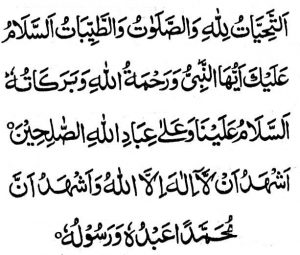 اَلتَّحِيَّاتُ لِلّٰهِ وَالصَّلَوٰتُ وَالطَّيِّبَاتُ اَلسَّلَامُ
عَلَيْكَ اَيُّهَا النَّبِيُّ وَرَحْمَةُ اللهِ وَبَرَكَاتُهٗ
اَلسَّلَامُ عَلَيْنَا وَعَلٰى عِبَادِ اللهِ الصّٰلِحِيْنَ
اَشْهَدُ اَنْ لَّآ اِلٰهَ اِلَّا اللهُ وَاَشْهَدُ اَنَّ
مُحَمَّدًا عَبْدُهٗ وَرَسُوْلُهٗ